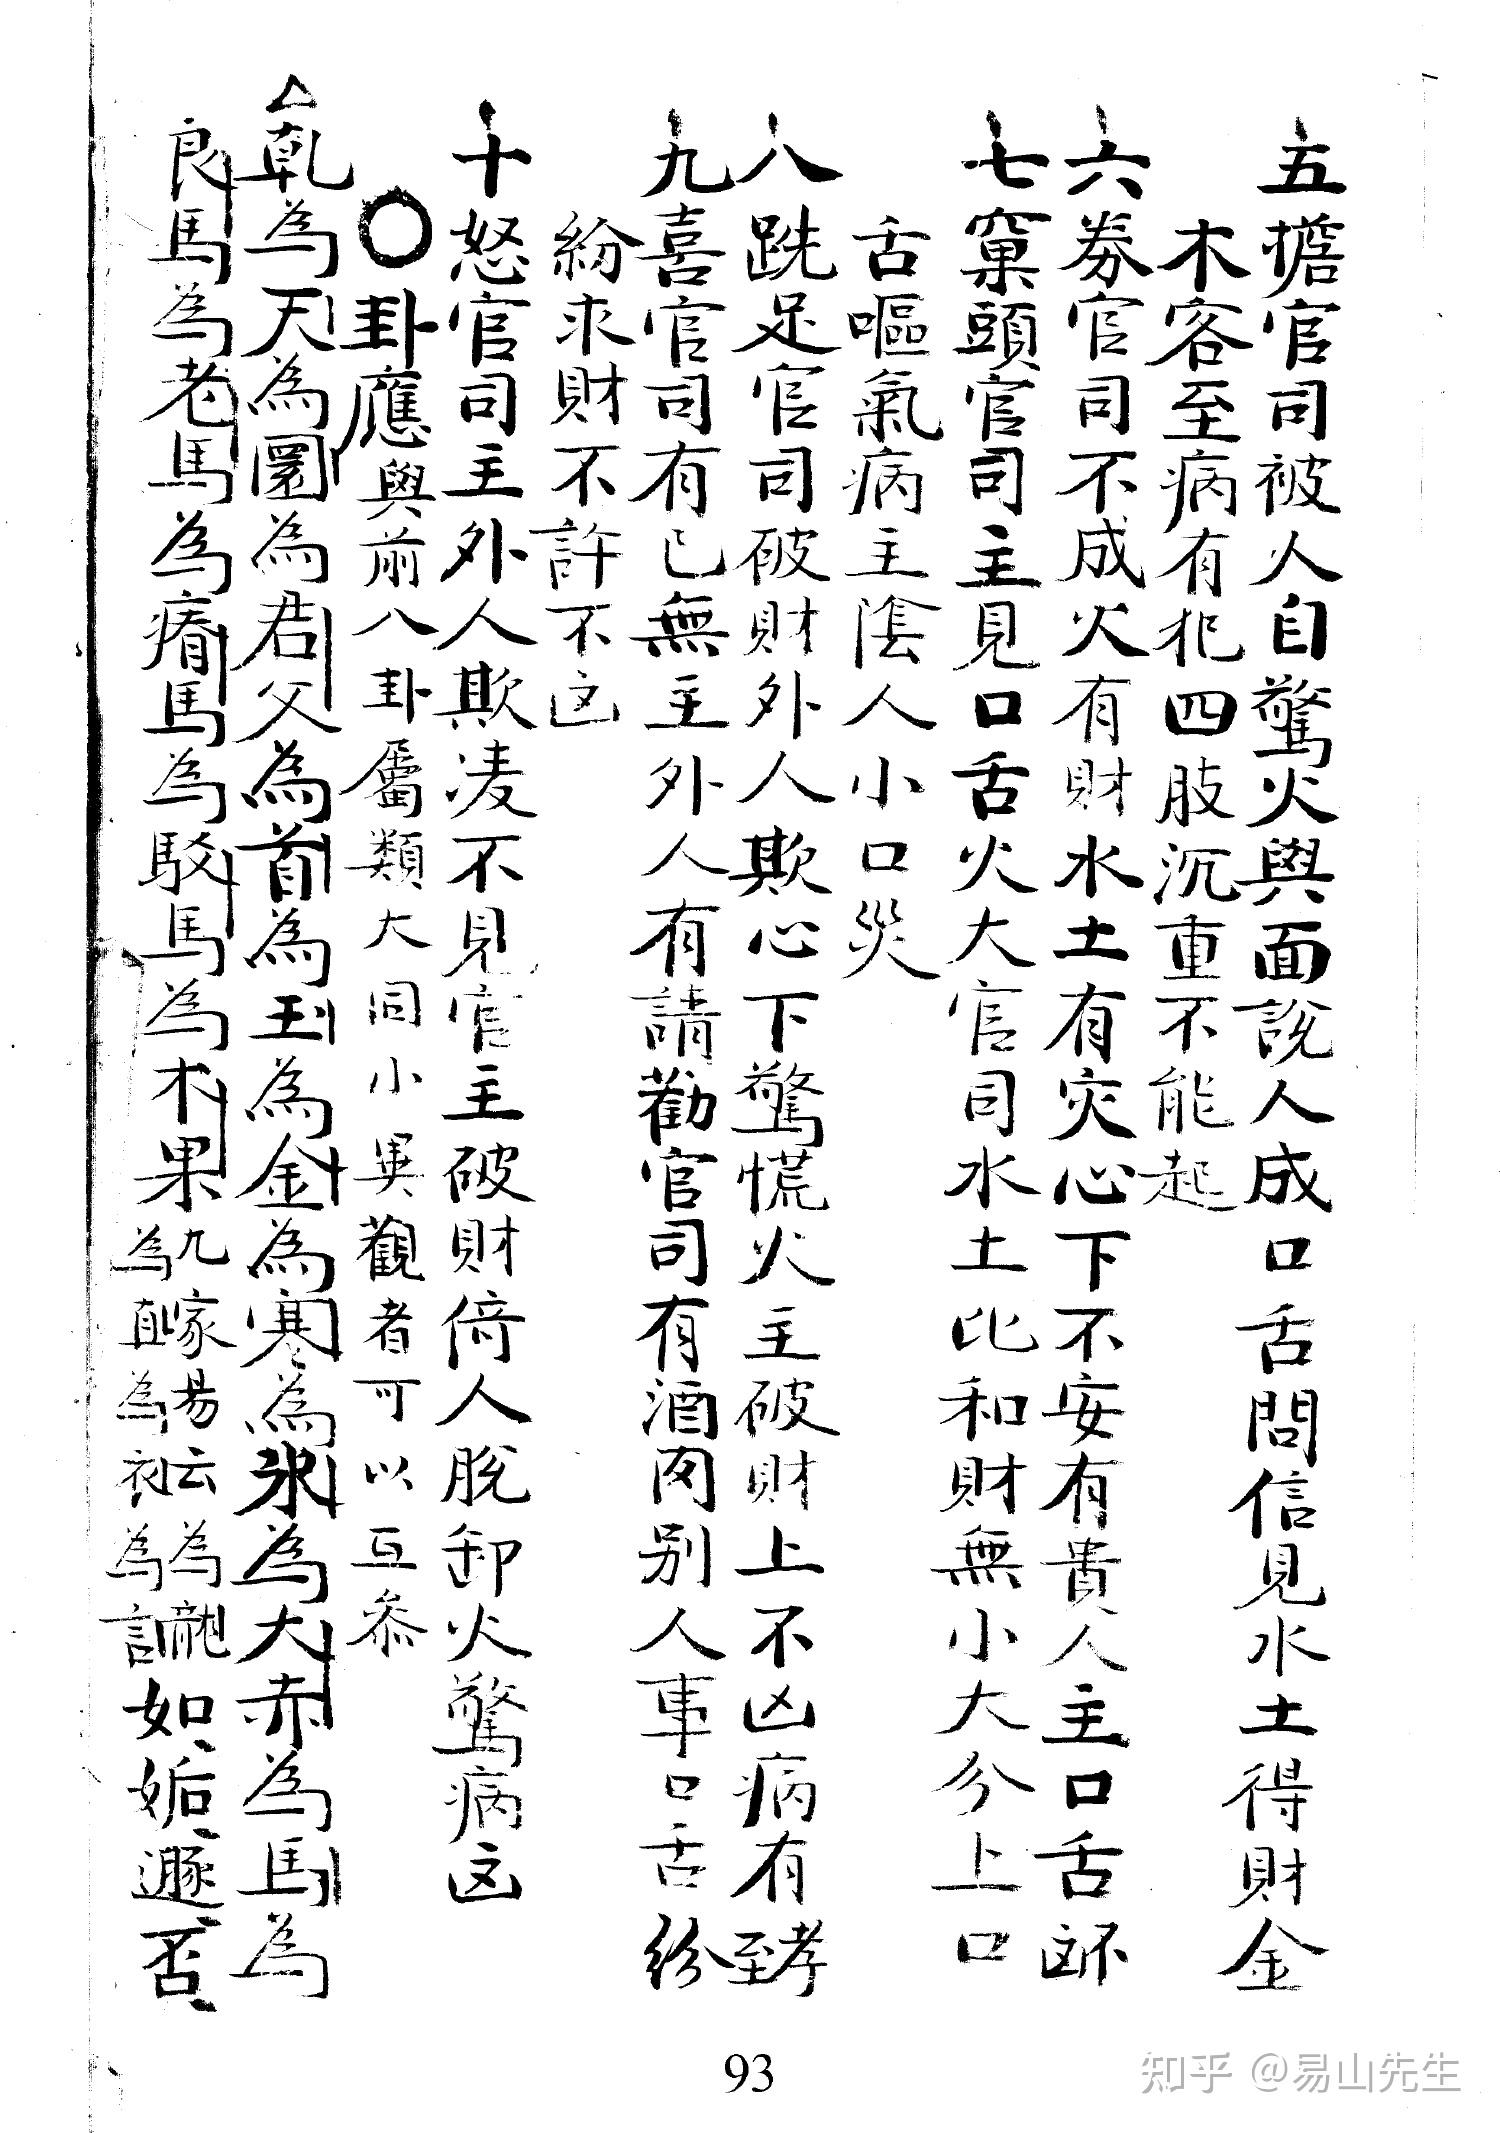 五擔官司被人自驚火與面說人成口舌問信見水土得財金
木客至病有犯四肢沉重不能起
六劵官司不成火有財水土有灾心下不安有貴人主口舌
七窠頭官司主見口舌火大官司水土比和財無小大分上口
舌嘔氣病主隂人小口災
八跣足官司破財外人欺心下驚慌火主破財上不凶病有至孝
九喜官司有已無主外人有請勸官司有酒肉别人事口舌紛
紛求財不許不凶
十怒官司主外人欺凌不見官主破財倚人脫卸火驚病凶
〇卦應與前八卦屬類大同小異觀者可以互叅
△乾為天為圜為君父為首為玉為金為寒為氷為大赤為馬為
良馬為老馬為瘠馬為駁馬為木果九家易云為龍為直為衣為言如姤遯否
93
知乎 @易山先生